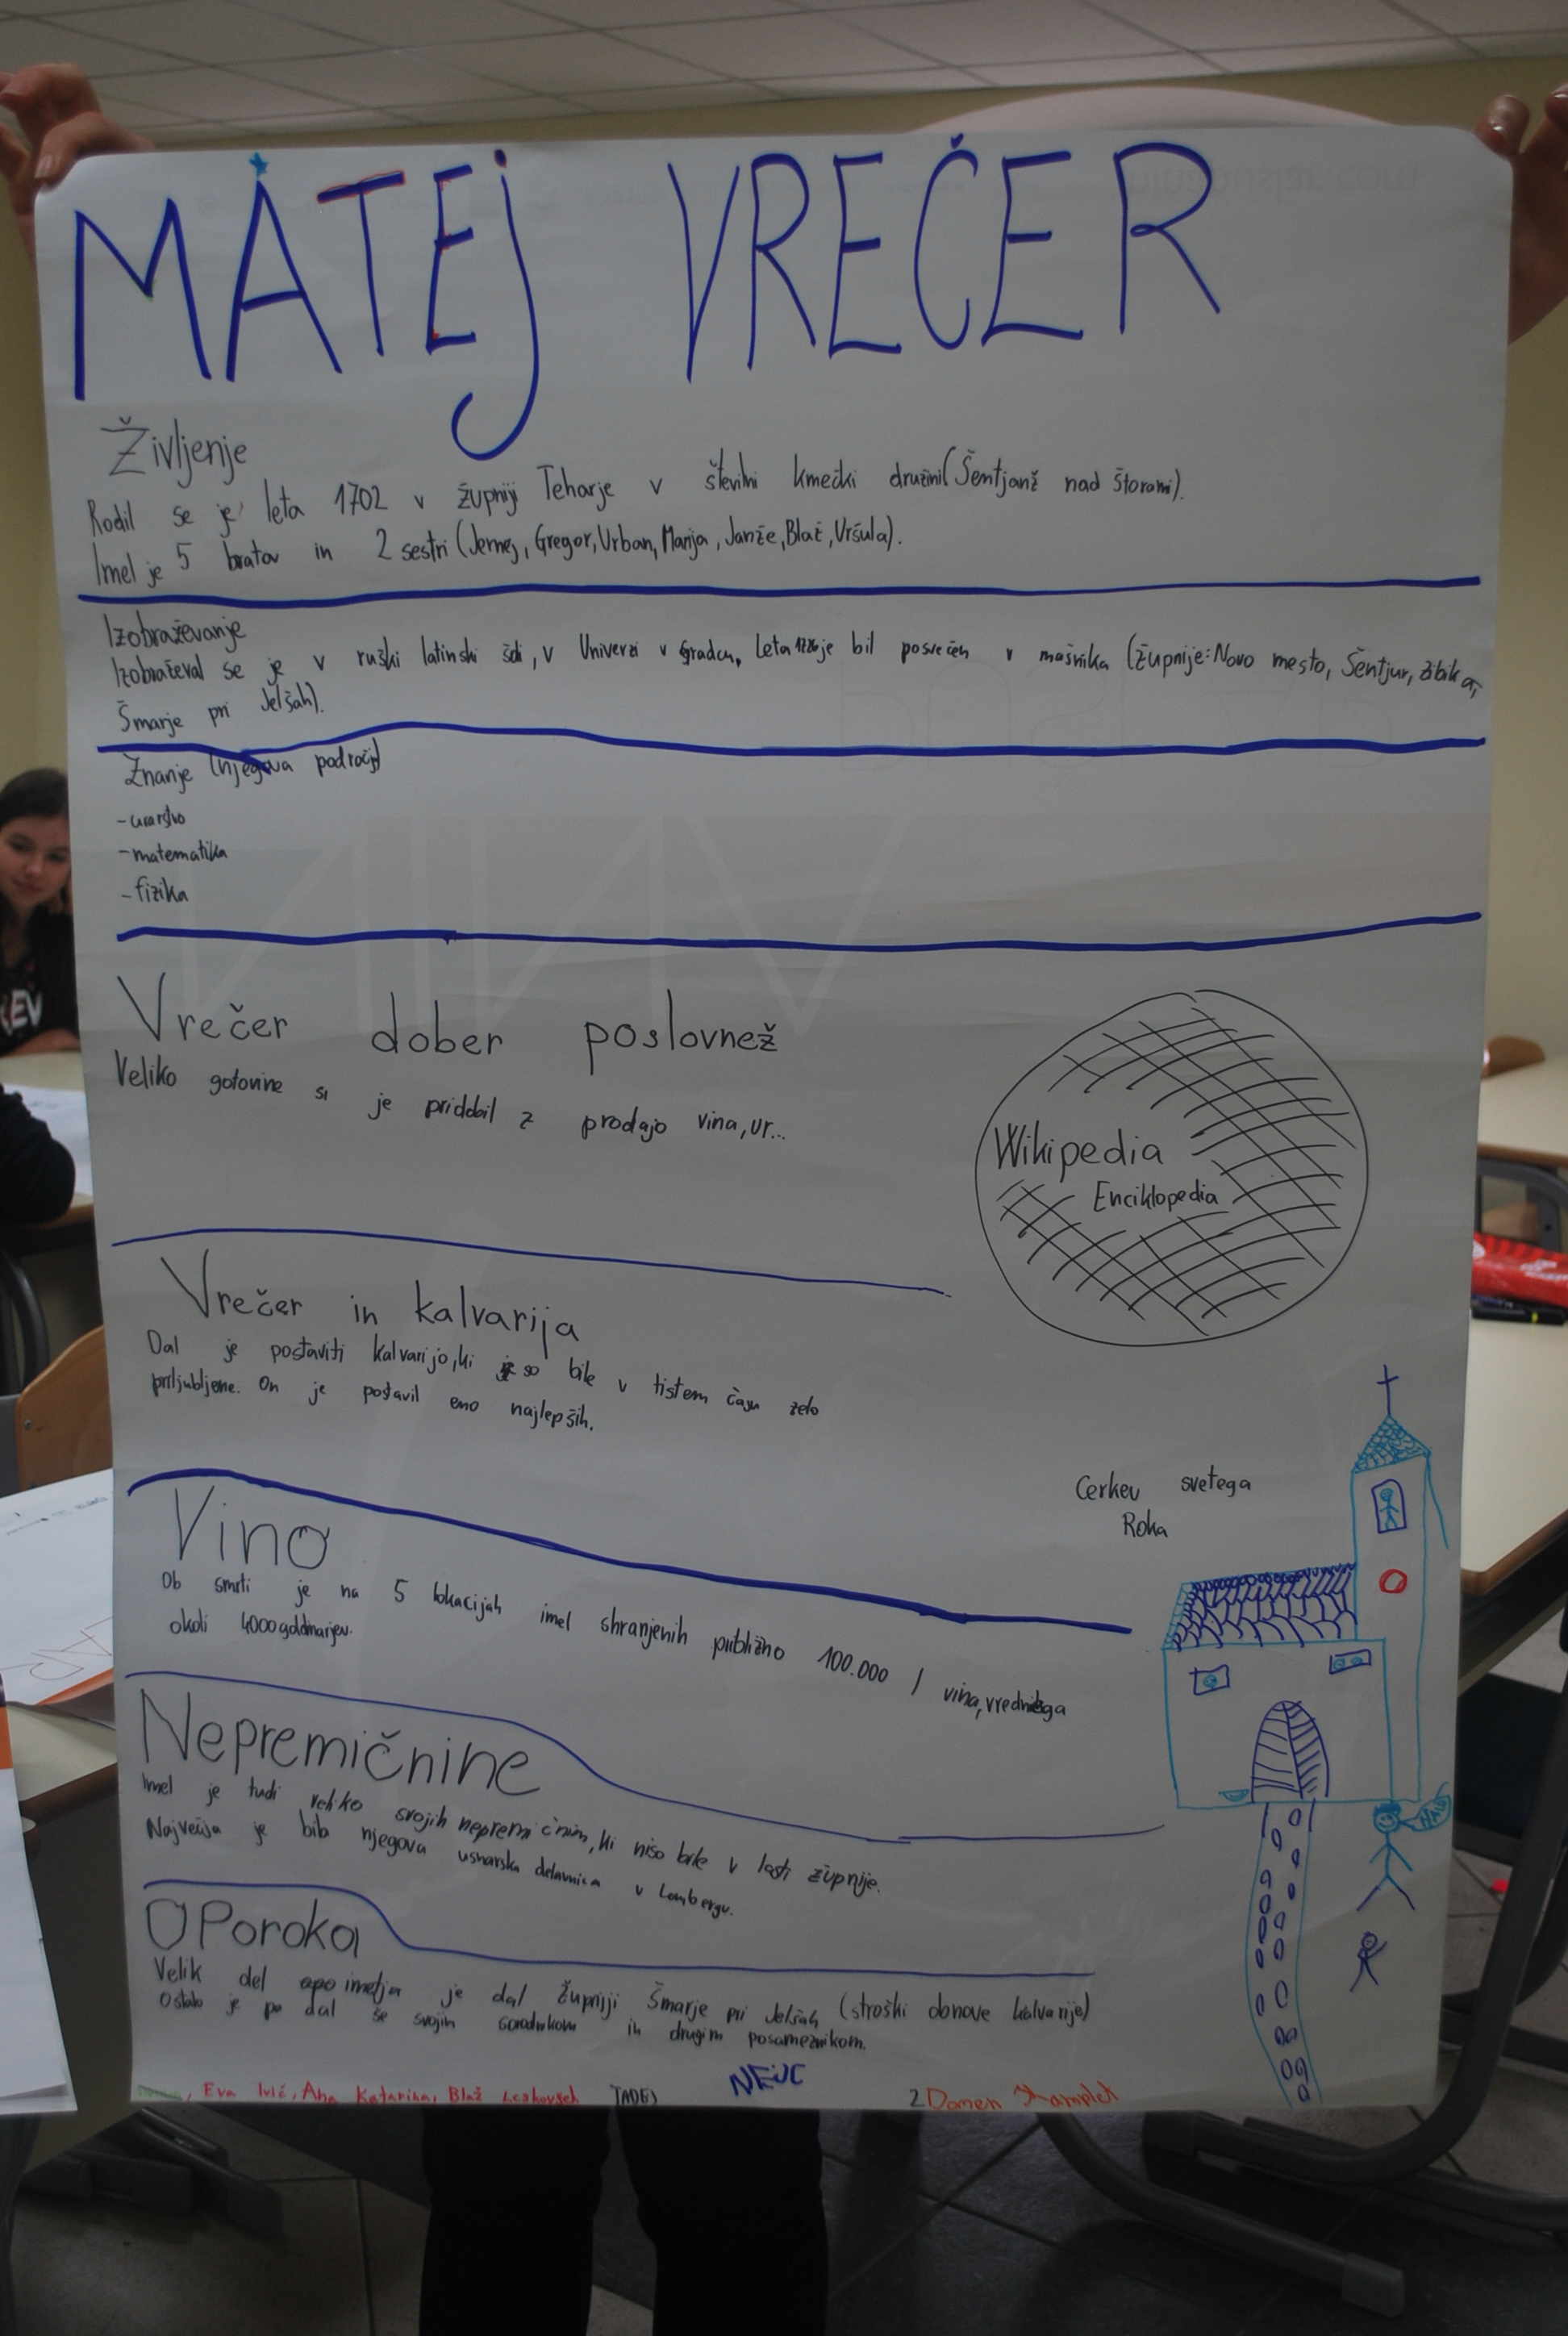 MATEJ VREČER
Življenje
Rodil se je leta 1702 v župniji Teharje v številni kmečki družini (Šentjanž nad Štorami).
Imel je 5 bratov in 2 sestri (Jernej, Gregor, Urban, Marija, Janže, Blaž, Uršula).
Izobraževanje
Izobraževal se je v ruški latinski šoli, v Univerzi v Gradcu, Leta je bil posvečen v mašnika (župnije: Novo mesto, Šentjur, Žibika,
Šmarje pri Jelšah).
Znanje (njegova področja)
- urarstvo
- matematika
- fizika
Vrečer dober poslovnež
Veliko gotovine si je priddbil z prodajo vina, ur...
Wikipedia
Enciklopedia
Vrečer in kalvarija
Dal je postaviti kalvarijo, ki so bile v tistem času zelo
priljubljene. On je postavil eno najlepših.
Cerkev svetega
Roka
Vino
Ob smrti je na 5 lokacijah imel shranjenih približno 100.000 l vina, vrednega
okoli 4000 goldinarjev.
Nepremičnine
Imel je tudi veliko svojih nepremičnin, ki niso bile v lasti župnije.
Največja je bila njegova usnarska delavnica v Lembergu.
HALO
OPoroka
Velik del imetja je dal Župniji Šmarje pri Jelšah (stroški obnove kalvarije)
Ostalo je pa dal še svojim sorodnikom in drugim posameznikom.
, Eva Ivić, Ana Katarina, Blaž Leskovšek TADEJ NEJC 2 Domen Kamplet